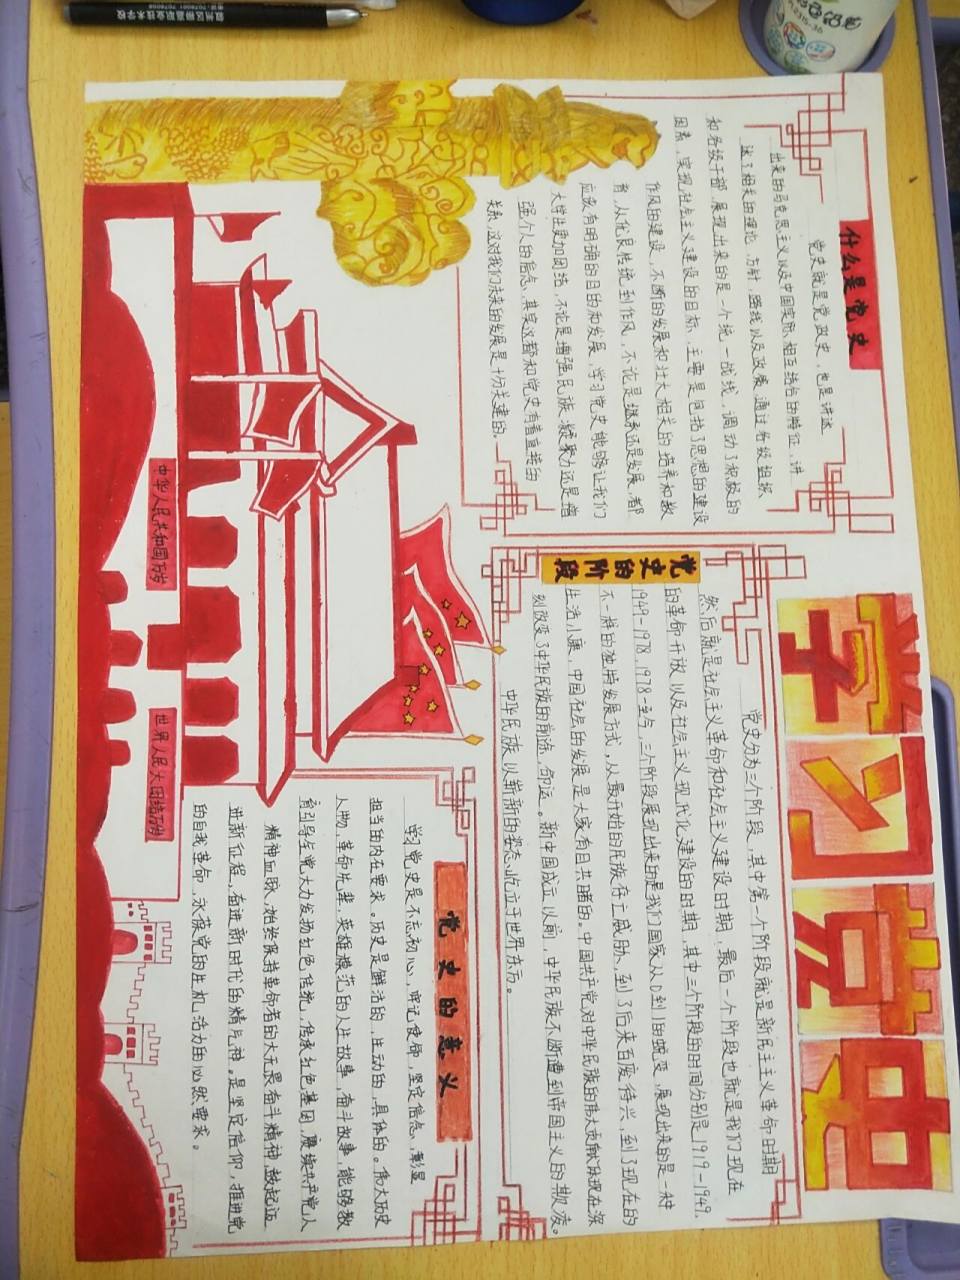 学习党史
什么是党史
党史就是党政史，也是讲述
出来的马克思主义以及中国实际相互结合的特征，讲
述了相关的理论，方针，路线以及政策，通过各级组织
和各级干部，展现出来的是一个统一战线，调动了积极的
因素，实现社会主义建设的目标，主要是包括了思想的建设
作风的建设，不断的发展和壮大相关的培养和教
育，从优良传统到作风，不论是继承还是发展，都
应该有明确的目的和发展，学习党史能够让我们
大学生更加团结，不论是增强民族凝聚力还是增
强个人的信念，其实这都和党史有着直接的
关系，这对我们未来的发展是十分关键的。
党史的阶段
党史分为三个阶段，其中第一个阶段就是新民主主义革命时期
然后就是社会主义革命和社会主义建设时期，最后一个阶段也就是我们现在
的革命开放以及社会主义现代化建设的时期，其中三个阶段的时间分别是1919-1949，
1949-1978，1978-至今，三个阶段展现出来的是我们国家从0到1的蜕变，展现出来的是一种
不一样的独特发展方式，从最开始的民族存亡威胁，到了后来百废待兴，到了现在的
生活小康，中国社会的发展是大家有目共睹的。中国共产党对中华民族的伟大贡献体现在深
刻改变了中华民族的前途，命运。新中国成立以前，中华民族不断遭到帝国主义的欺凌。
中华民族以崭新的姿态屹立于世界东方。
党史的意义
学习党史是不忘初心，牢记使命，坚定信念，彰显
担当的内在要求。历史是鲜活的，生动的，具体的。伟大历史
人物，革命先辈，英雄模范的人生故事，奋斗故事，能够教
育引导全党大力发扬红色传统，传承红色基因，赓续共产党人
精神血脉，始终保持革命者的大无畏奋斗精神，鼓起迈
进新征程，奋进新时代的精气神。是坚定信仰，推进党
的自我革命，永葆党的生机活力的必然要求。
中华人民共和国万岁
世界人民大团结万岁